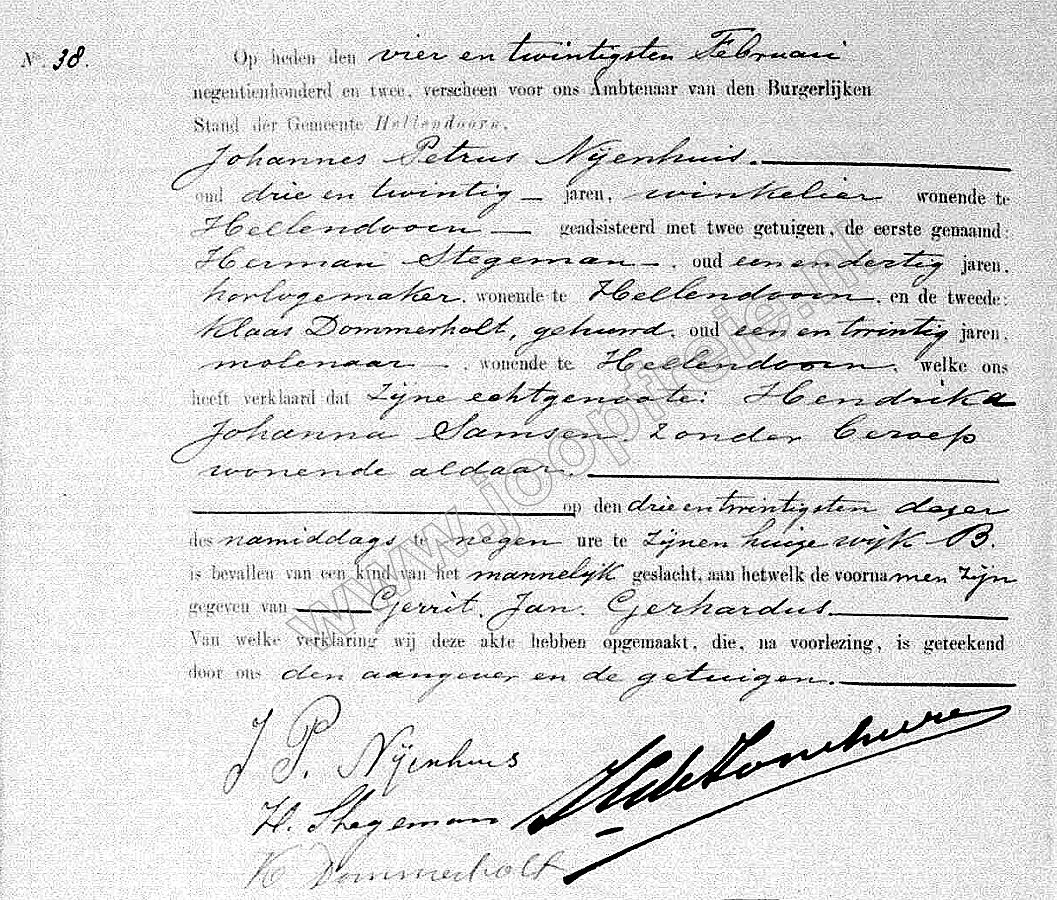 No. 38. Op heden den vier en twintigsten Februari
negentienhonderd en twee, verscheen voor ons Ambtenaar van den Burgerlijken
Stand der Gemeente Hellendoorn,
Johannes Petrus Nijenhuis.
oud drie en twintig jaren, winkelier wonende te
Hellendoorn geadsisteerd met twee getuigen, de eerste genaamd:
Herman Stegeman, oud een en dertig jaren,
horlogemaker, wonende te Hellendoorn, en de tweede:
Klaas Dommerholt, gehuwd, oud een en twintig jaren,
molenaar, wonende te Hellendoorn, welke ons
heeft verklaard dat Zijne echtgenoote: Hendrika
Johanna Samsen, zonder beroep
wonende aldaar.
op den drie en twintigsten dezer
des namiddags te negen ure te Zijnen huize wijk B.
is bevallen van een kind van het mannelijk geslacht, aan hetwelk de voornamen zijn
gegeven van Gerrit, Jan, Gerhardus
Van welke verklaring wij deze akte hebben opgemaakt, die, na voorlezing, is geteekend
door ons den aangever en de getuigen.
J P. Nijenhuis
H. Stegeman
K Dommerholt
www.joopfreie.nl